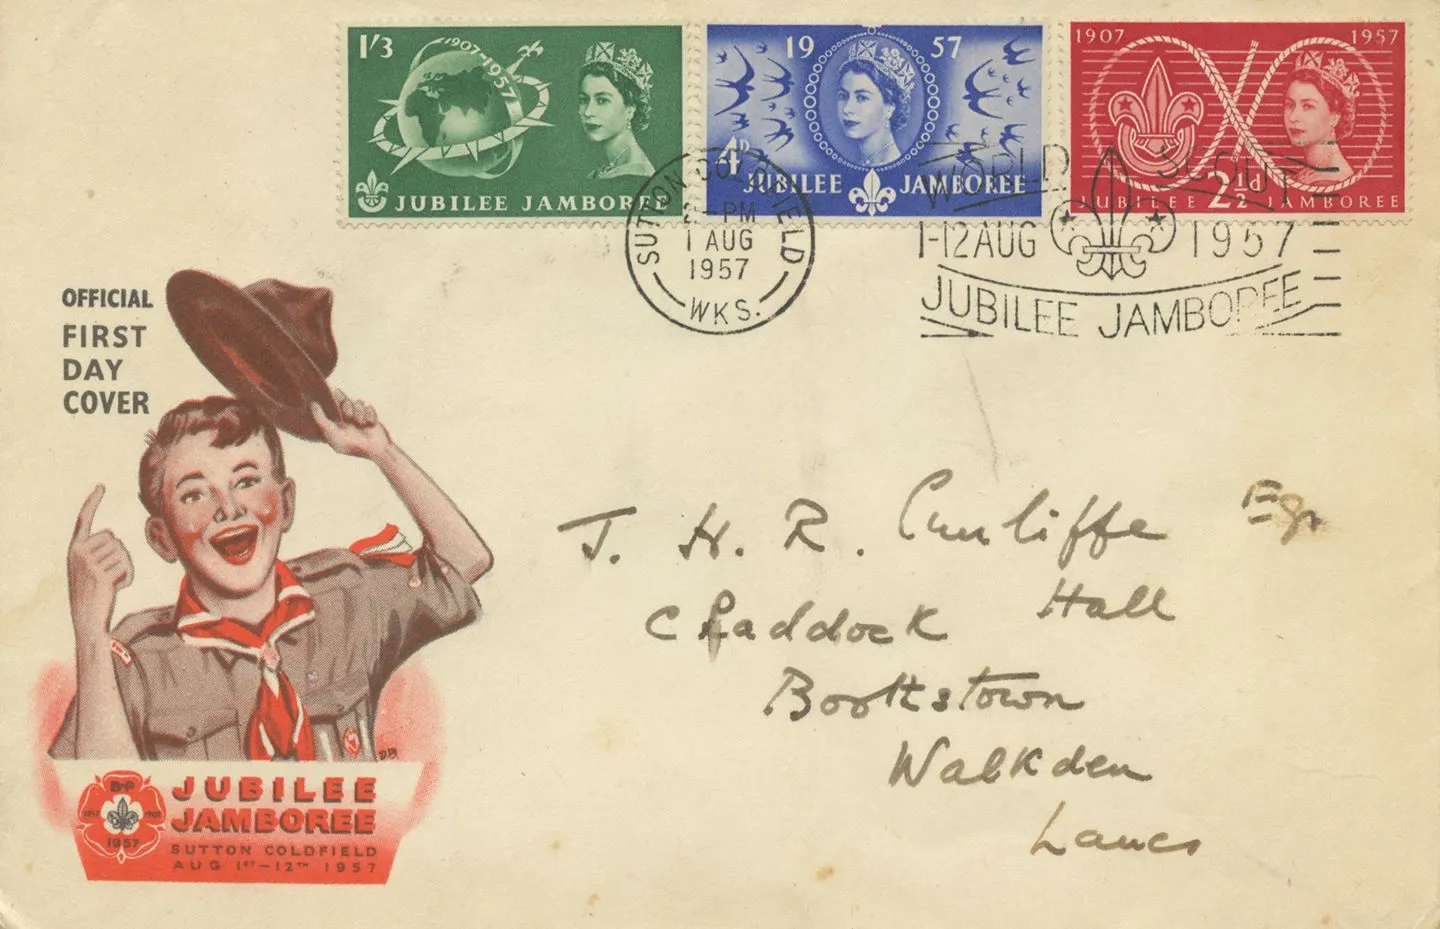 1'3
1907-1957
JUBILEE JAMBOREE
19 57
4D
JUBILEE JAMBOREE
1907 1957
JUBILEE 2½d JAMBOREE
SUTTON COLDFIELD
-PM
1 AUG
1957
WKS.
WORLD SCOUT
1-12 AUG 1957
JUBILEE JAMBOREE
OFFICIAL
FIRST
DAY
COVER
T. H. R. Cunliffe Esq
Chaddock Hall
Boothstown
Walkden
Lancs
DB
B-P
1957
JUBILEE
JAMBOREE
SUTTON COLDFIELD
AUG 1ST-12TH 1957